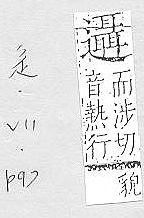 而涉切
音熱行
貌
辵
·
VII
·
p97